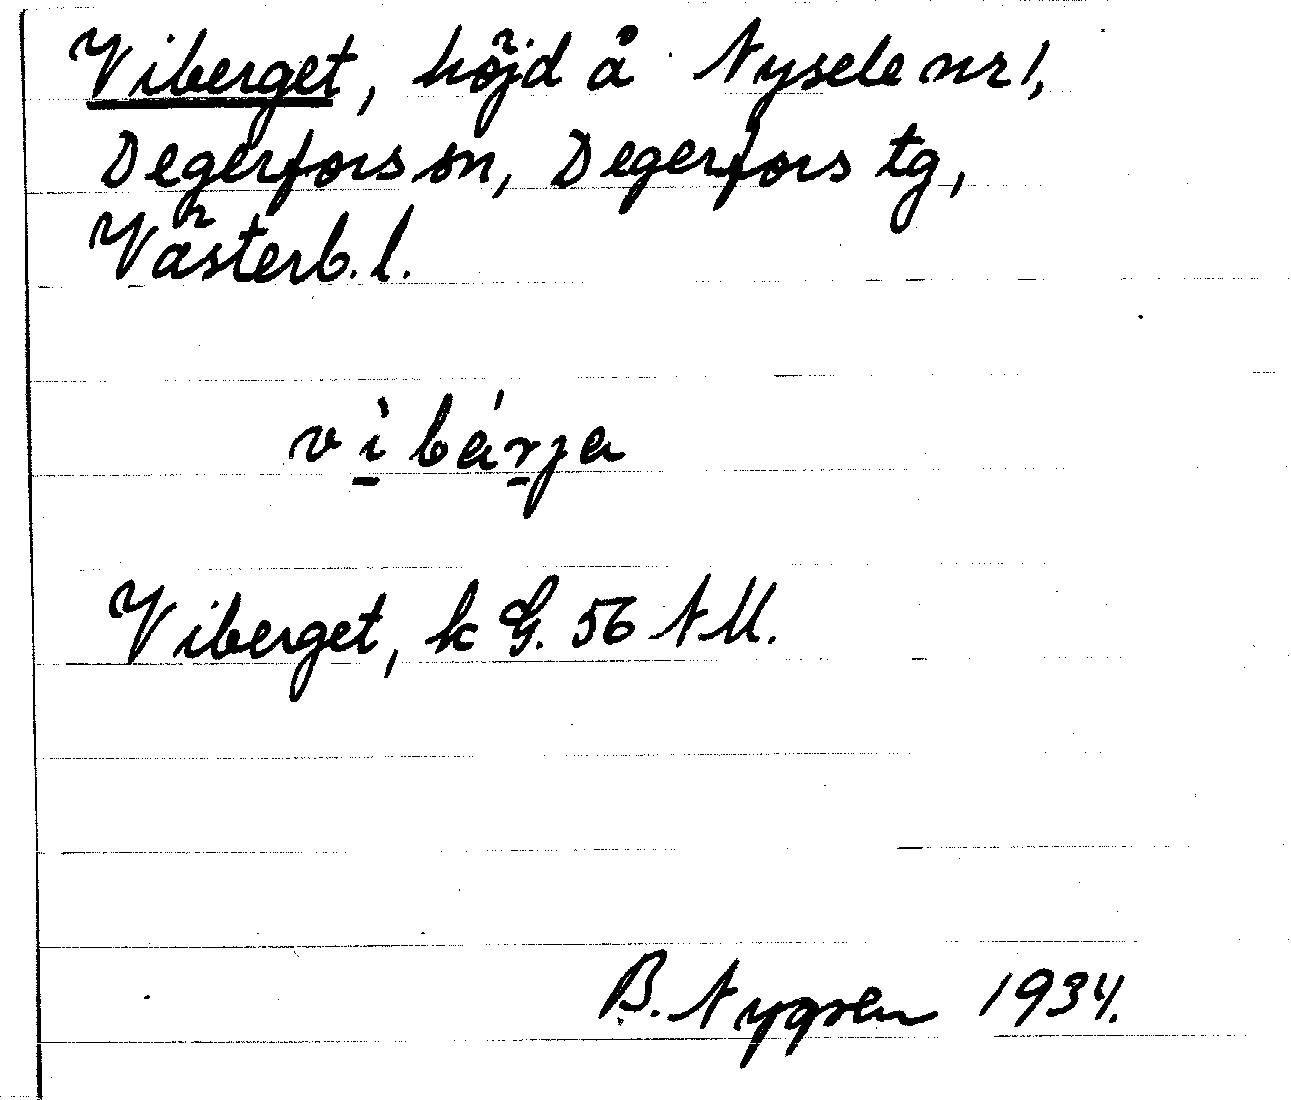 Viberget, höjd å Nysele nr 1,
Degerfors sn, Degerfors tg,
Västerb. l.
vìbárja
Viberget, k G. 56 NU.
B. Nygren 1934.